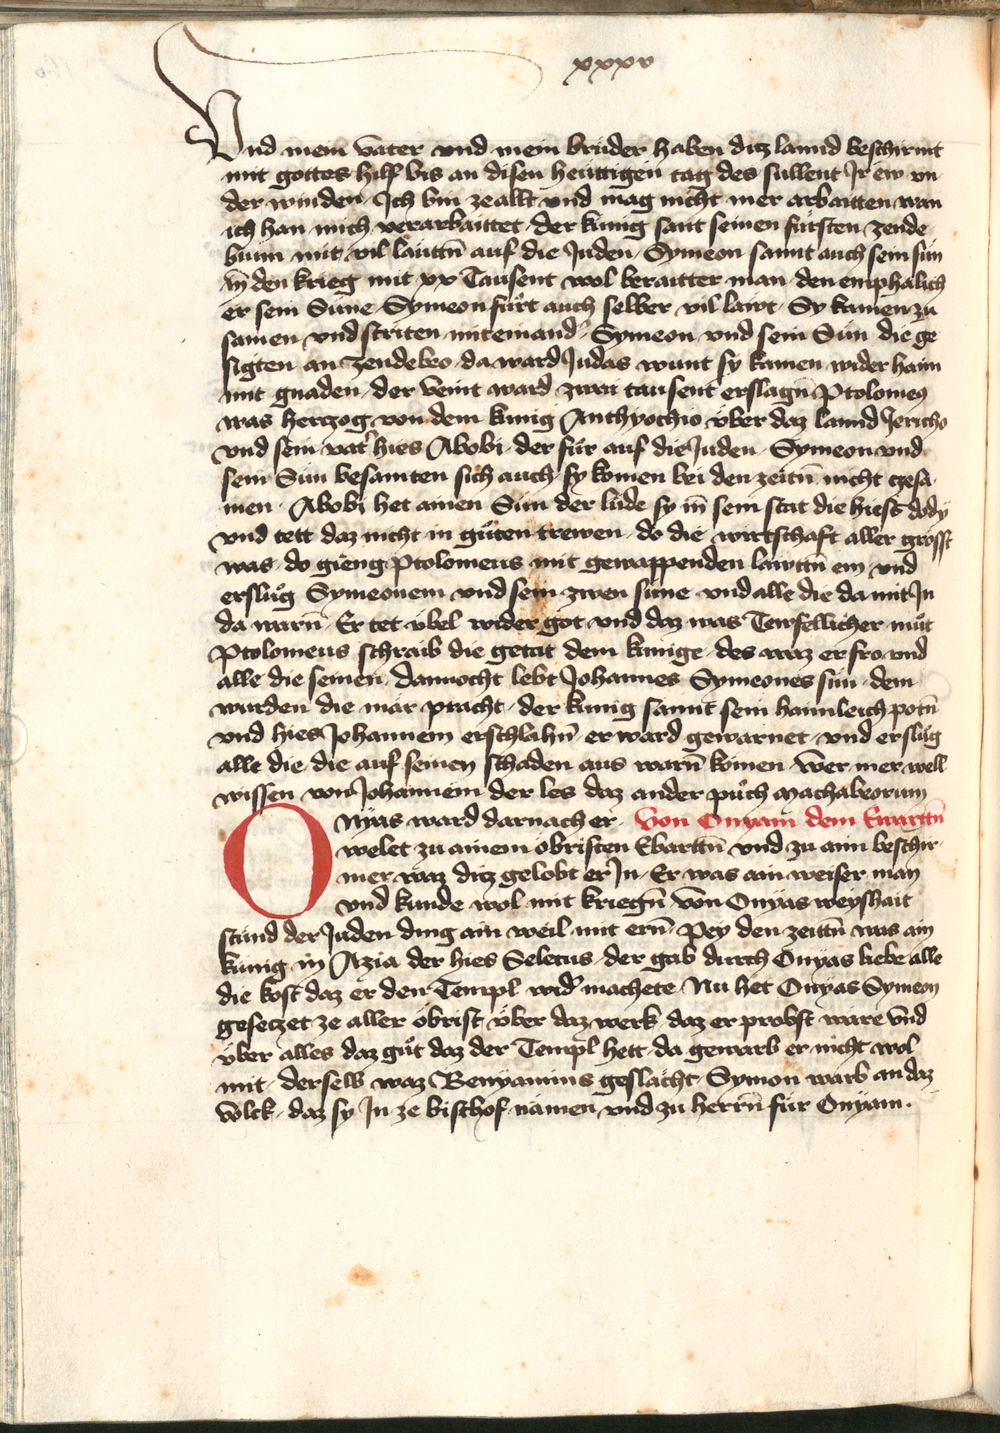 xxxv
Vnd mein vater vnd mein brüder haben ditz lannd beschirmt
mit gottes hilf bis an disen heüttigen tag des sullent Jr ew vn
der winden · Ich bin zeallt vnd mag nicht mer arbaitten wan
ich han mich verarbaittet · der künig sant seinen fürsten zende
buim mit vil läuttn̄ auf die Juden · Symeon sannt auch sein sün
in den krieg mit xx Tausent wol beraitter man · den emphalich
er sein Süne · Symeon fürt auch selber vil lawt · Sy kamen zu
samen vnd striten miteinand᾽ · Symeon vnd sein Sün die ge
sigten an zendebeo · da ward Judas wunt sy kamen wider haim
mit gnaden · der veint ward zwai tausent erslagn̄ Ptolomeus
was hertzog von dem künig Anthyochio über daz lannd Jericho
vnd sein vat᾽ hies Abobi · der für auf die Juden · Symeon vnd
sein Sün besamten sich auch · sy komen bei den zeitn̄ nicht czesa
men · Abobi het ainen Sün der lüde sy in sein stat die hiesß dody
vnd tett daz nicht in gůten trewen · do die wirtschaft aller grösst
was · do gieng Ptolomeus mit gewappenden lawttn̄ ein vnd
erslůg Symeonem vnd sein zwen süne vnd alle die da mit Jn
da warn̄ · Er tet übel wider got vnd daz was Tewfellicher můt
Ptolomeus schraib die getat dem künige · des waz er fro vnd
alle die seinen · dannocht lebt Johannes Symeones sün · dem
wurden die mär pracht · der künig sannt sein haimleich potn̄
vnd hies Johannem erschlahn̄ er ward gewarnet · vnd erslůg
alle die · die auf seinen schaden aus warn̄ komen · wer mer well
wissen von Johannem der les daz ander půch Machabeorum
Onyas ward darnach er · Von Onyam dem Ewarttn̄
welet zu ainem öbristen Ebarttn̄ vnd zu aim beschir
mer waz ditz gelobt er Jn · Er was ain weiser man
vnd kunde wol mit kriegn̄ von Onyas weyshait
stünd der Juden ding ain weil mit ern̄ · Pey den zeittn̄ was ain
künig in Azia der hies Seletus · der gab durch Onyas liebe alle
die kost daz er den Templ wid᾽ machete · Nu het Onyas Symeon
gesetzet ze aller öbrist über daz werk daz er probst ware vnd
über alles daz gůt daz der Templ hett · da gewarb er nicht wol
mit · derselb waz Benyamins geslächt · Symon warb an daz
volck · daz sy Jn ze bischof nämen vnd zu herrn̄ für Onyam ·